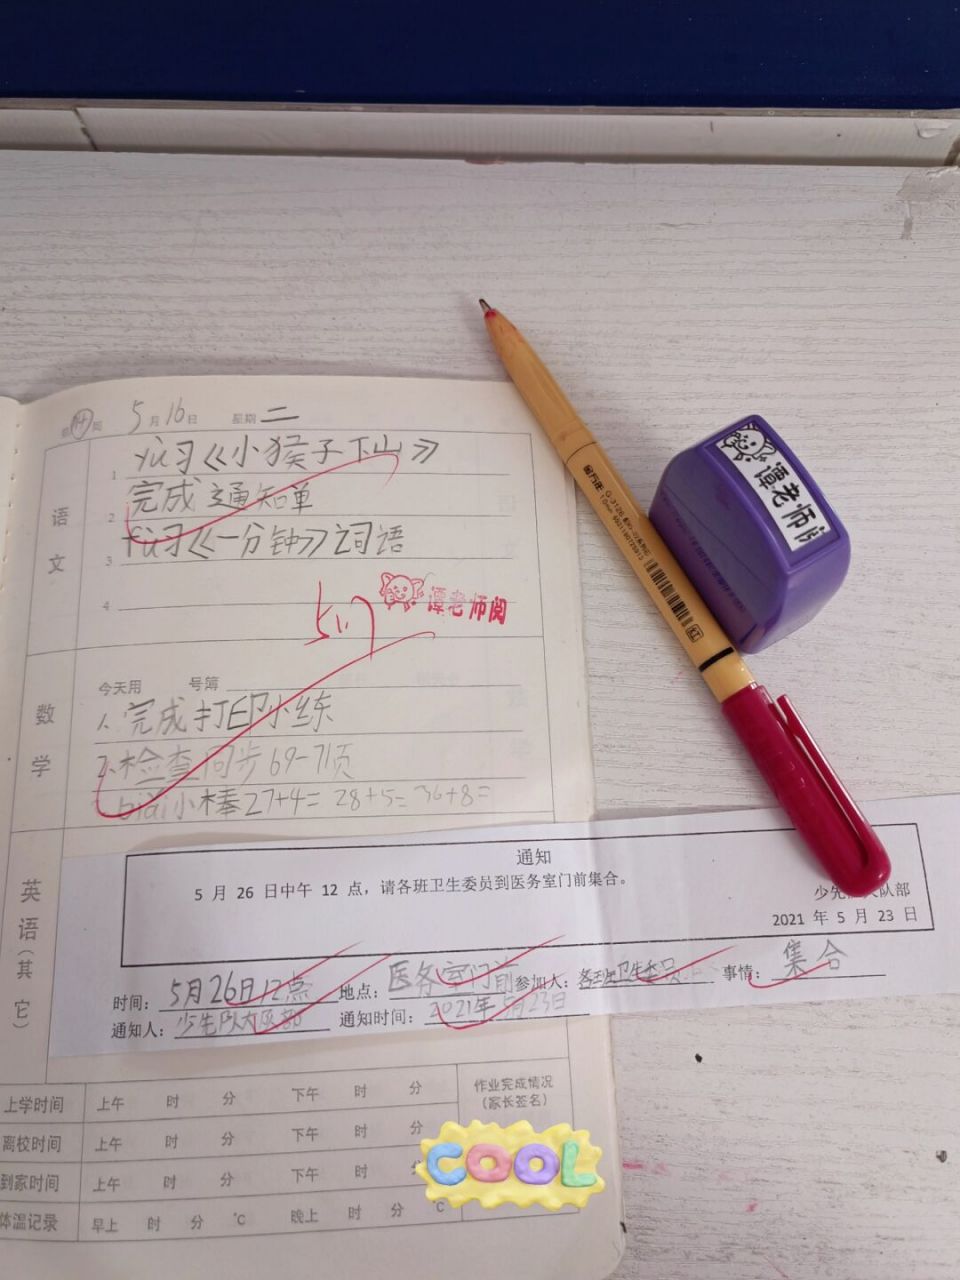 第14周 5月16日 星期二
语文
1 fù习《小猴子下山》
2 完成通知单
3 fù习《一分钟》词语
4
谭老师阅
数学
今天用 号簿
1.完成打印小练
2.检查同步69-71页
bǎi小棒27+4= 28+5= 36+8=
英语(其它)
通知
5 月 26 日中午 12 点，请各班卫生委员到医务室门前集合。
少先 大队部
2021 年 5 月 23 日
时间：5月26日12点 地点：医务室门前 参加人：各班卫生委员 事情：集合
通知人：少先队大队部 通知时间：2021年5月23日
上学时间 上午 时 分 下午 时 分 作业完成情况
(家长签名)
离校时间 上午 时 分 下午 时 分
到家时间 上午 时 分 下午 时
体温记录 早上 时 分 ℃ 晚上 时 分 ℃
COOL
金万年 G-3126
1.0mm
红
谭老师阅